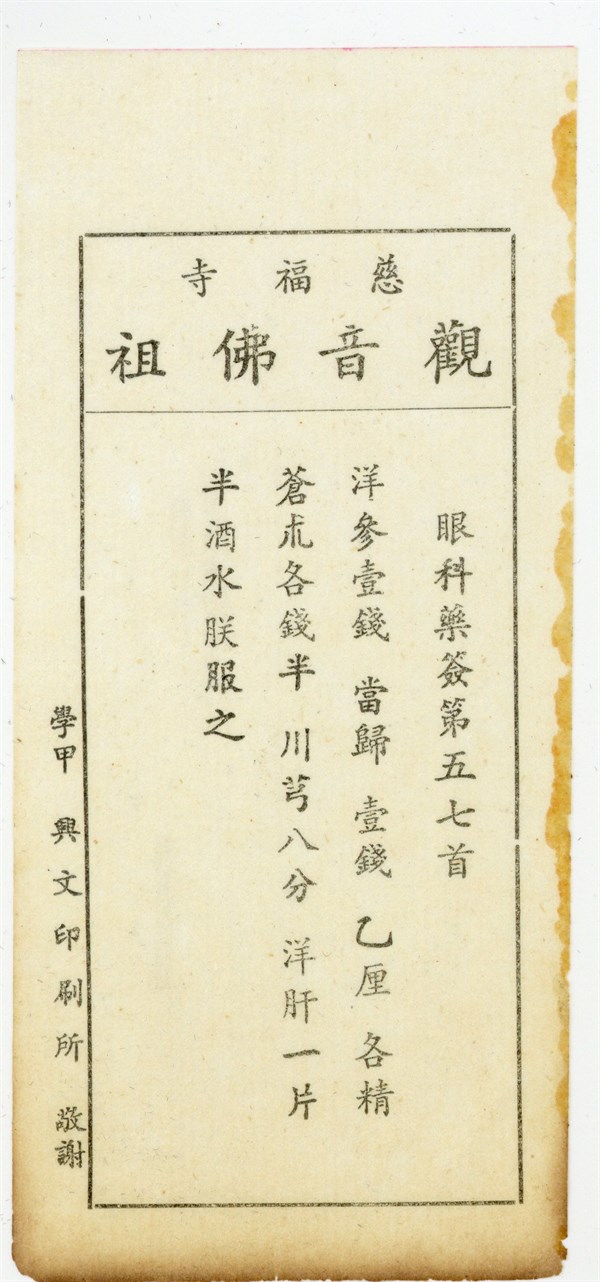 慈福寺
觀音佛祖
眼科藥簽第五七首
洋參壹錢 當歸 壹錢 乙厘 各精
蒼朮各錢半 川芎八分 洋肝一片
半酒水朕服之
學甲 興文印刷所 敬謝